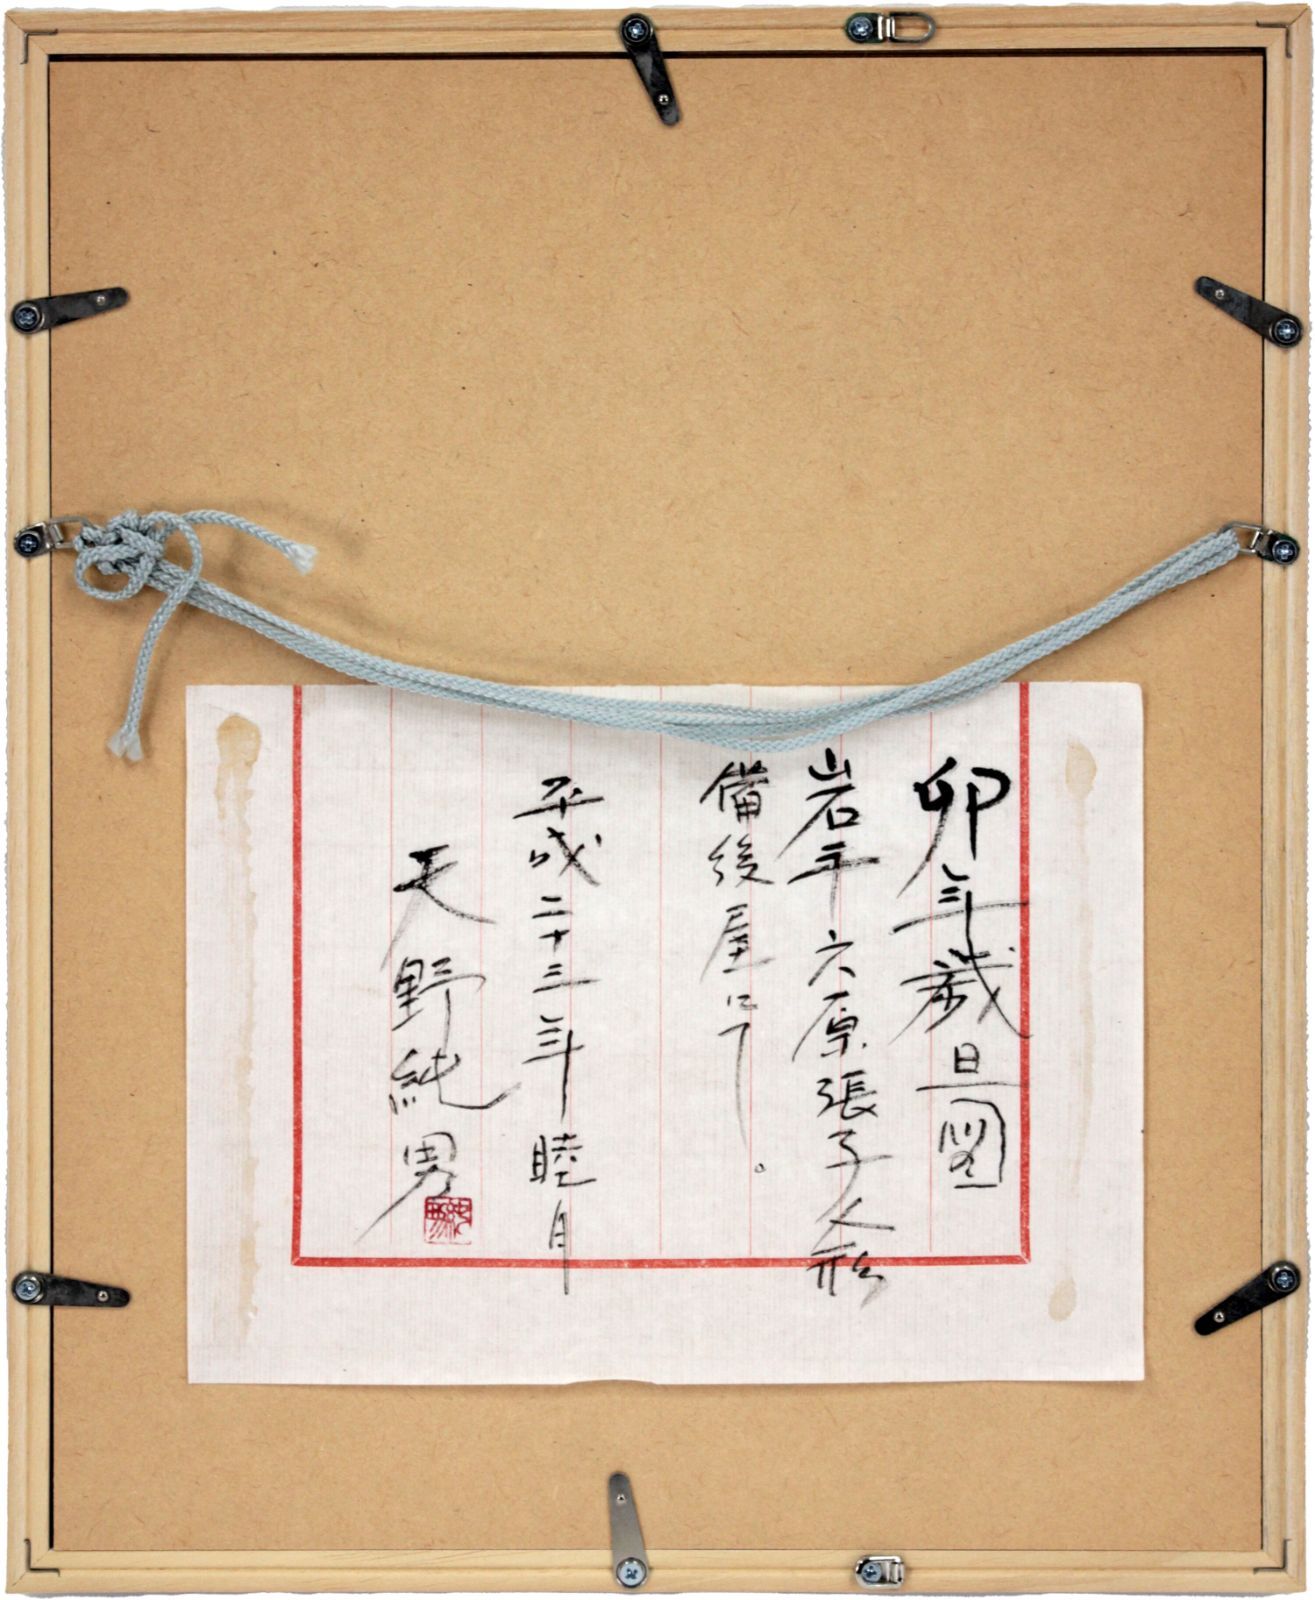 卯年歳旦図
岩手六原張子人形
備後屋にて。
平成二十三年睦月
天野純男